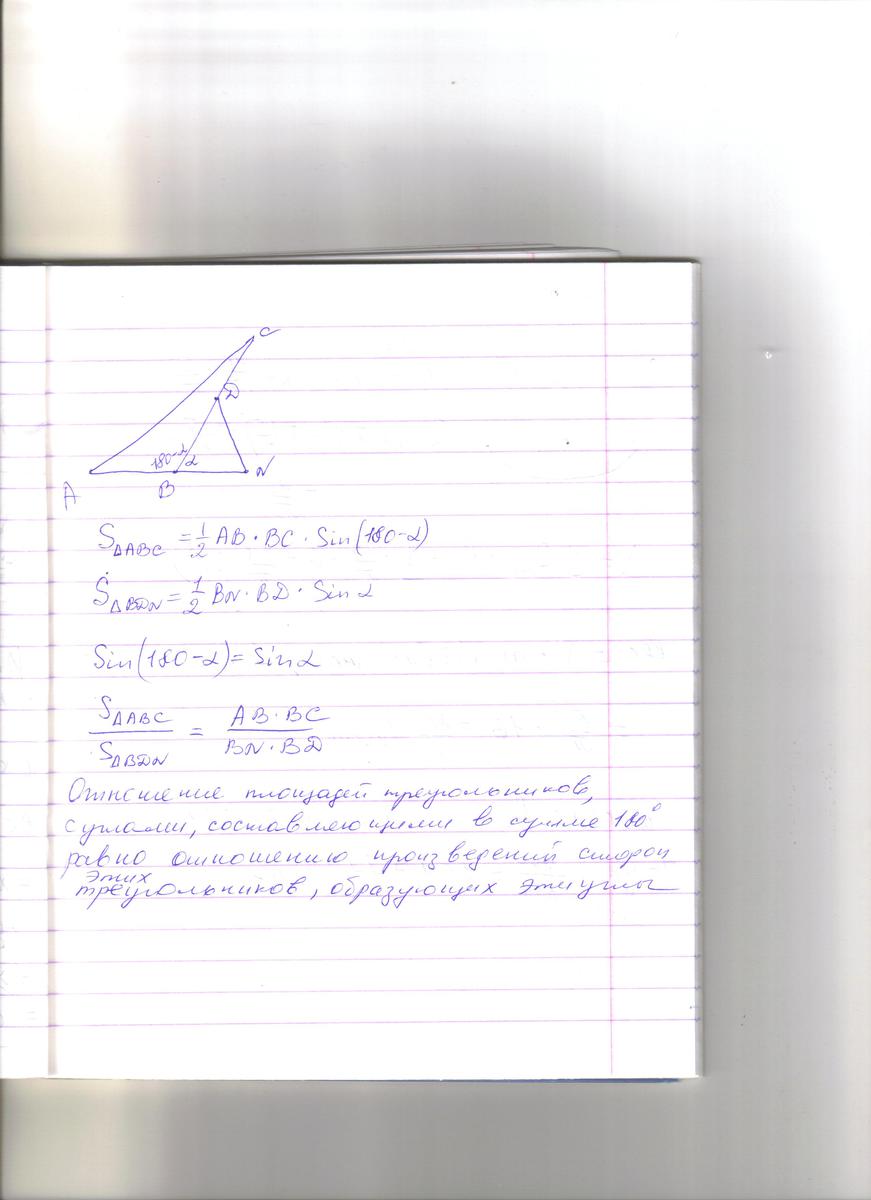 C
D
180-α
α
A
B
N
S△ABC = 1/2 AB · BC · Sin(180-α)
S△BDN = 1/2 BN · BD · Sin α
Sin(180-α) = Sin α
S△ABC / S△BDN = AB · BC / BN · BD
Отношение площадей треугольников,
с углами, составляющими в сумме 180°
равно отношению произведений сторон
этих
треугольников, образующих эти углы